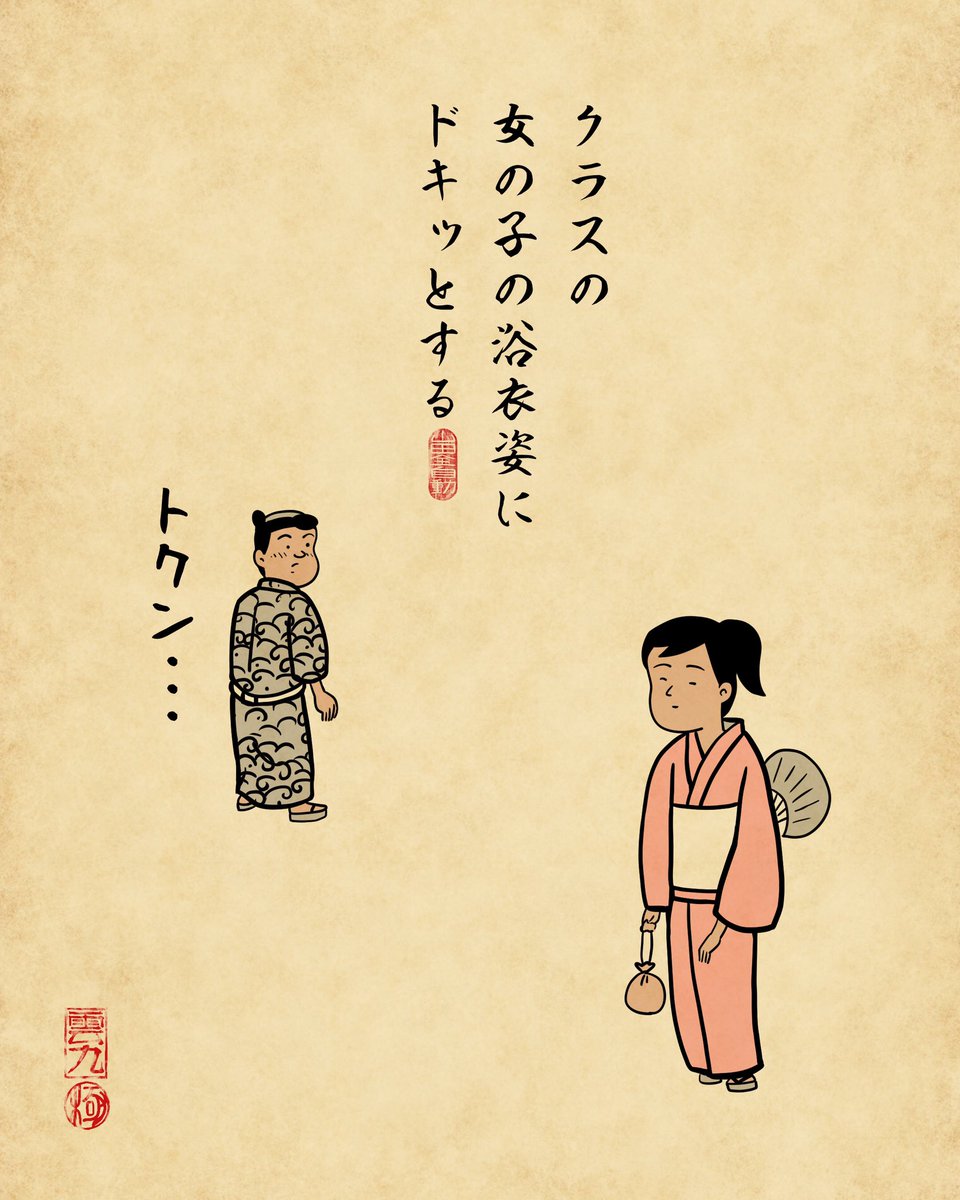 クラスの
女の子の浴衣姿に
ドキッとする
トクン・・・